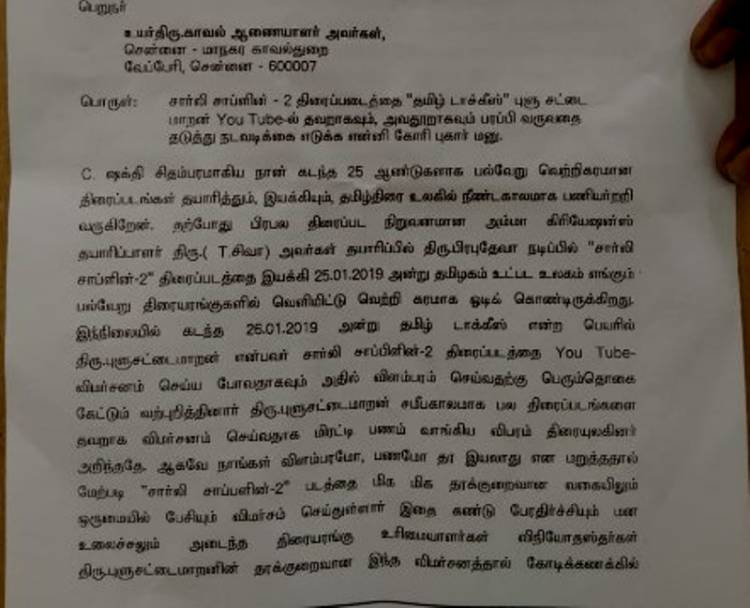 பெறுநர்
உயர்திரு.காவல் ஆணையாளர் அவர்கள்,
சென்னை - மாநகர காவல்துறை
வேப்பேரி, சென்னை - 600007
பொருள்: சார்லி சாப்ளின் - 2 திரைப்படைத்தை "தமிழ் டாக்கீஸ்" புளு சட்டை
மாறன் You Tube-ல் தவறாகவும், அவதூறாகவும் பரப்பி வருவதை
தடுத்து நடவடிக்கை எடுக்க என்னி கோரி புகார் மனு.
C. ஷக்தி சிதம்பரமாகிய நான் கடந்த 25 ஆண்டுகளாக பல்வேறு வெற்றிகரமான
திரைப்படங்கள் தயாரித்தும், இயக்கியும், தமிழ்திரை உலகில் நீண்டகாலமாக பணியற்றறி
வருகிறேன். தற்போது பிரபல திரைப்பட நிறுவனமான அம்மா கிரியேஷன்ஸ்
தயாரிப்பாளர் திரு.( T.சிவா) அவர்கள் தயாரிப்பில் திரு.பிரபுதேவா நடிப்பில் "சார்லி
சாப்ளின்-2" திரைப்படத்தை இயக்கி 25.01.2019 அன்று தமிழகம் உட்பட உலகம் எங்கும்
பல்வேறு திரையரங்குகளில் வெளிமிட்டு வெற்றி கரமாக ஓடிக் கொண்டிருக்கிறது.
இந்நிலையில் கடந்த 26.01.2019 அன்று தமிழ் டாக்கீஸ் என்ற பெயரில்
திரு.புளுசட்டைமாறன் என்பவர் சார்லி சாப்பிளின்-2 திரைப்படத்தை You Tube-
விமர்சனம் செய்ய போவதாகவும் அதில் விளம்பரம் செய்வதற்கு பெரும்தொகை
கேட்டும் வற்புறித்தினார் திரு.புளுசட்டைமாறன் சமீபகாலமாக பல திரைப்படங்களை
தவறாக விமர்சனம் செய்வதாக மிரட்டி பணம் வாங்கிய விபரம் திரையுலகினர்
அறிந்ததே. ஆகவே நாங்கள் விளம்பரமோ, பணமோ தர இயலாது என மறுத்ததால்
மேற்படி "சார்லி சாப்பளின்-2" படத்தை மிக மிக தரக்குறைவான வகையிலும்
ஒருமையில் பேசியும் விமர்சம் செய்துள்ளார் இதை கண்டு பேரதிர்ச்சியும் மன
உலைச்சலும் அடைந்த திரையரங்கு உரிமையாளர்கள் விநியோதஸ்தர்கள்
திரு.புளுசட்டைமாறனின் தரக்குறைவான இந்த விமர்சனத்தால் கோடிக்கணக்கில்